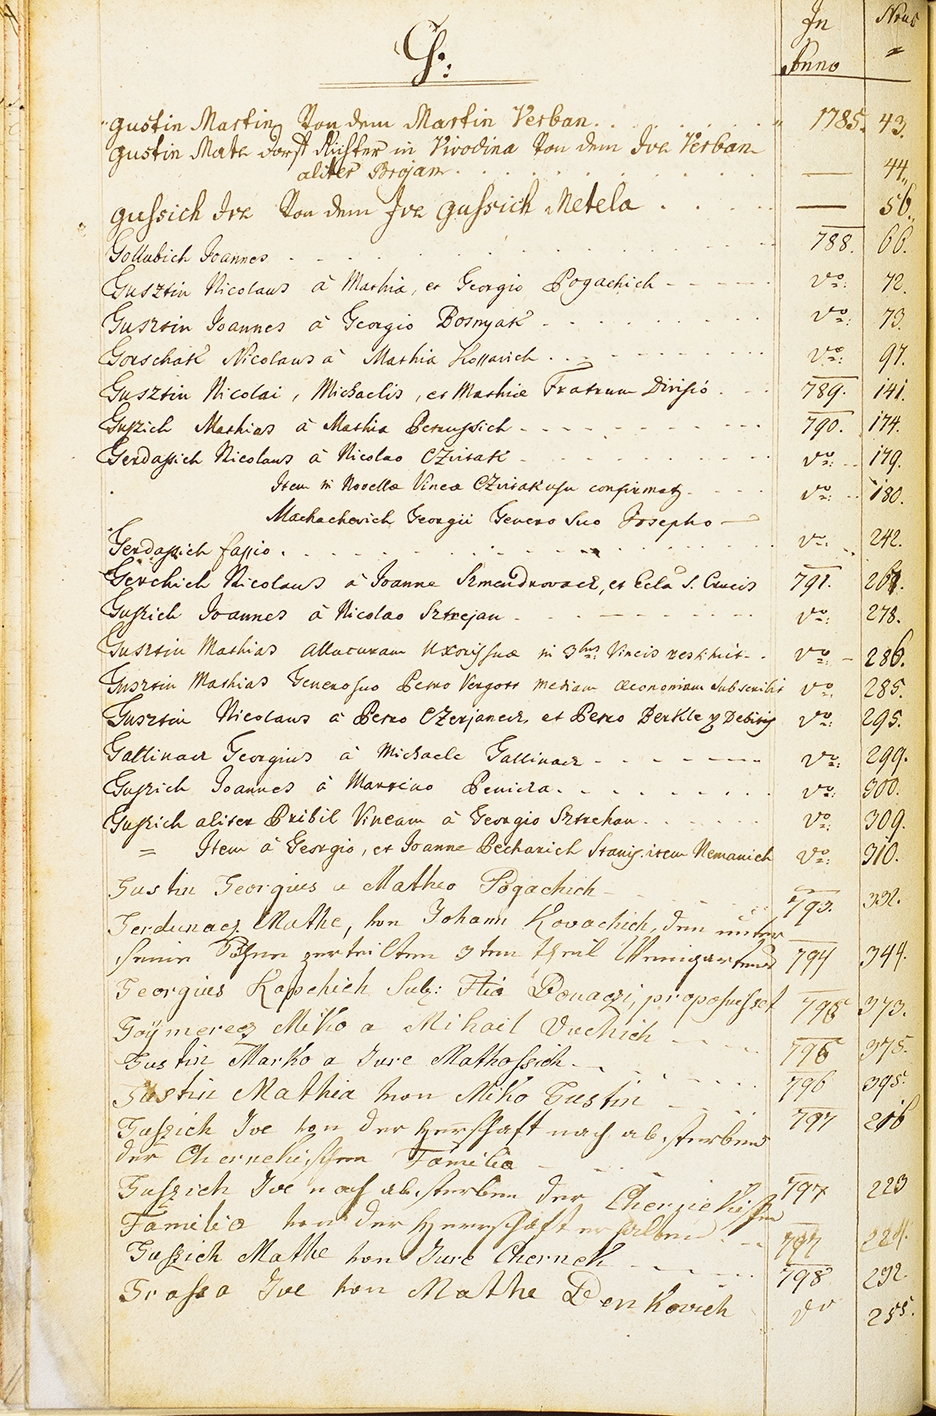 G:
In Anno
Nrus
Gustin Martin Von dem Martin Verban. 1785. 43.
Gustin Mate dorf Richter in Vivodina Von dem Ive Verban
aliter Brojam — 44.
Gussich Ive Von dem Ive Gussich Metela — 56.
Gollubich Joannes 788. 66.
Gusztin Nicolaus à Mathia, et Georgio Pogachich vo: 72.
Gusztin Joannes à Georgio Bosnyak vo: 73.
Gorschak Nicolaus à Mathia vo: 97.
Gusztin Nicolai, Michaelis, et Mathiæ Fratrum Divisio 789. 141.
Guszich Mathias à Mathia Petrussich 790. 174.
Gerdassich Nicolaus à Nicolao Czvitak vo: 179.
Item in Novellæ Vineæ Czvitak usu confirmat. vo: 180.
Machachevich Georgii Genero Suo Josepho —
Gerdassich fassio vo: 242.
Gerchich Nicolaus à Joanne Smendrovacz, et Ecla S. Crucis 791. 261.
Guszich Joannes à Nicolao Sztrejan vo: 278.
Gusztin Mathias uxoris suæ in 3bus: Vineis vo: 286.
Gusztin Mathias Genero suo Petro Vergott mediam œconomiam subscribit vo: 285.
Gusztin Nicolaus à Petro Czerjanecz, et Petro Berkle Debitis vo: 295.
Gallinacz Georgius à Michaele Gallinacz vo: 299.
Guszich Joannes à Martino Penicza vo: 300.
Guszich aliter Pribil Vineam à Georgio Sztrehan vo: 309.
= Item à Georgio, et Joanne Becharich item Nemanich vo: 310.
Gustin Georgius a Matheo Pogachich 793. 332.
Gerdunacz Mathe, von Johann Kovachich, den unter
seine Söhne zertheilten 3ten theil Weingartens 794 344.
Georgius Kapchich Sub: 795 373.
Goÿmerecz Miko a Mihail Vuchich 795 375.
Gustin Marko a Jure Mathossich 796 395.
Gustin Mathia von Miko Gustin 797 216
Guszich Ive von der Herschaft nach absterbens
der Chernekischen Familia 797 223
Guszich Ive nach absterben der Chernekischen
Familia von der Herrschaft erhalten 797 224.
Guszich Mathe von Jure Chernek 798 232
Grassa Ive von Mathe Denkovich vo 255.